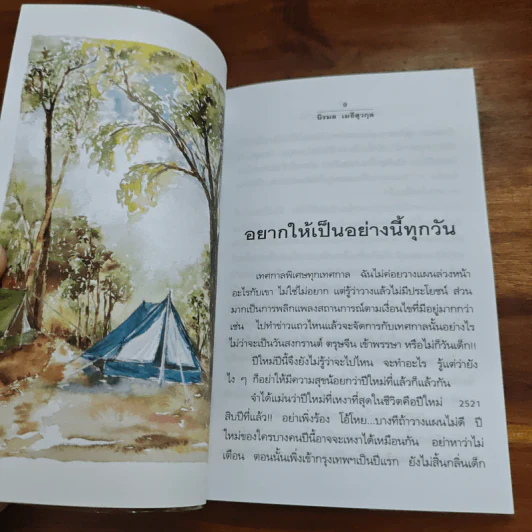 9
นิรมล เมธีสุวกุล
อยากให้เป็นอย่างนี้ทุกวัน
เทศกาลพิเศษทุกเทศกาล ฉันไม่ค่อยวางแผนล่วงหน้า
อะไรกับเขา ไม่ใช่ไม่อยาก แต่รู้ว่าวางแล้วไม่มีประโยชน์ ส่วน
มากเป็นการพลิกแพลงสถานการณ์ตามเงื่อนไขที่มีอยู่มากกว่า
เช่น ไปทำข่าวแถวไหนแล้วจะจัดการกับเทศกาลนั้นอย่างไร
ไม่ว่าจะเป็นวันสงกรานต์ ตรุษจีน เข้าพรรษา หรือไม่ก็วันเด็ก!!
ปีใหม่ปีนี้จึงยังไม่รู้ว่าจะไปไหน จะทำอะไร รู้แต่ว่ายัง
ไง ๆ ก็อย่าให้มีความสุขน้อยกว่าปีใหม่ที่แล้วก็แล้วกัน
จำได้แม่นว่าปีใหม่ที่เหงาที่สุดในชีวิตคือปีใหม่ 2521
สิบปีที่แล้ว!! อย่าเพิ่งร้อง โอ้โหย...บางทีถ้าวางแผนไม่ดี ปี
ใหม่ของใครบางคนปีนี้อาจจะเหงาได้เหมือนกัน อย่าหาว่าไม่
เตือน ตอนนั้นเพิ่งเข้ากรุงเทพฯเป็นปีแรก ยังไม่สิ้นกลิ่นเด็ก